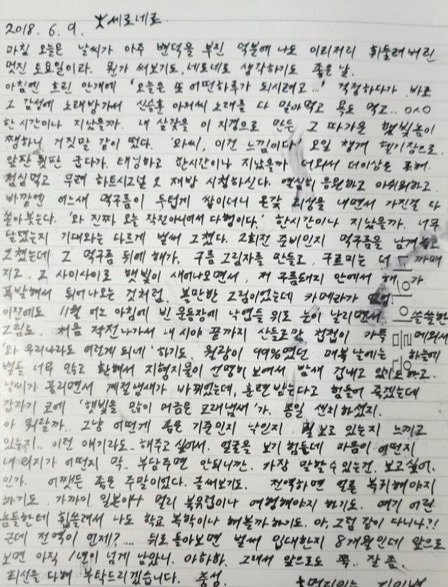 2018. 6. 9. 세로네로.
아침 오늘은 날씨가 아주 변덕을 부린 덕분에 나도 이리저리 휘둘려버린
멋진 토요일이라. 뭔가 써보기도, 네로네로 생각하기도 좋은 날.
아침엔 흐린 안개에 '오늘은 또 어떤하루가 되시려고...' 걱정하다가 바로
그 감성에 노래방가서 신승훈 아저씨 노래를 다 잊아먹고 욕도 먹고.. 0^0
한시간이나 지났을까. 내 살갗을 이 지경으로 만든 그 따가운 햇빛놈이
쨍하니 거짓말 같이 떴다. '와씨, 이건 느낌이다' 오일 챙겨 헬기장으로.
앞판 뒷판 굽다가. 태닝하고 한시간이나 지났을까 더워서 더이상은 못해.
점심먹고 무려 하트시그널 2 재방 시청하신다. 열심히 응원하고 아쉬워하고
바깥엔 어느새 먹구름이 두텁게 쌓이더니 온갖 괴성을 내면서 가진걸 다
쏟아놓는다. '와 진짜 오늘 작전아녀서 다행이다.' 한시간이나 지났을까. 너무
달렸는지 기대와는 다르게 벌써 그쳤다. 2회전 준비인지 먹구름을 남겨놓고
그쳤는데 그 먹구름 뒤에 해가. 구름 그림자를 만들고, 구름띠는 더 까매
지고. 그 사이사이로 햇빛이 새어나오면서, 저 구름돼지 안에서 해가
폭발해서 튀어나오는 것처럼. 볼만한 그림이었는데 카메라가 없어
이럴때도 11월 어느 아침에 빈 운동장에 낙엽들 위로 눈이 날리면서 쓸쓸한
그림도, 처음 작전나가서 내 시야 끝까지 산들로만 첩첩이 가득 메워서
'와 우리나라도 이렇게 되네' 하기도. 월광이 99%였던 매복 날에는 하늘에
별들 너무 많고 환해서 지형지물이 선명히 보여서 밤새 겁내고 있기도 하고.
날씨가 풀리면서 계절냄새가 바뀌었는데, 훈련 받는다고 힘들어 죽겠는데
갑자기 코에 '햇빛을 많이 머금은 모래냄새'가. 종일 센치하셨지.
아 뭐랄까. 그냥 어떻게 좋은 기준인지 낙인지 뭘 보고 있는지 느끼고
있는지.. 이런 얘기라도.. 해주고 싶어서. 얼굴을 보기 힘든데 마음이 어떤지
내 의지가 어떤지 막. 부담주면 안되니깐. 가장 말할 수 있는건. 보고싶어.
인가. 어쨌든 좋은 주말이었다. 굽어보기도. 전역하면 얼른 복귀해야지
하기도. 가까이 일본이나 멀리 북유럽이나 여행해야지 하기도. 여기 어린
놈들한테 휩쓸려서 나도 학교 복학이나 해볼까하기도. 아, 그럼 같이 다니나?!
근데 전역이 언제?.... 뒤로 돌아보면 벌써 입대한지 8개월인데 앞으로
보면 아직 1년이 넘게 남았네. 아하하. 그래서 앞으로도 쭉.. 잘 좀.
최선을 다해 부탁드리겠습니다. 충성